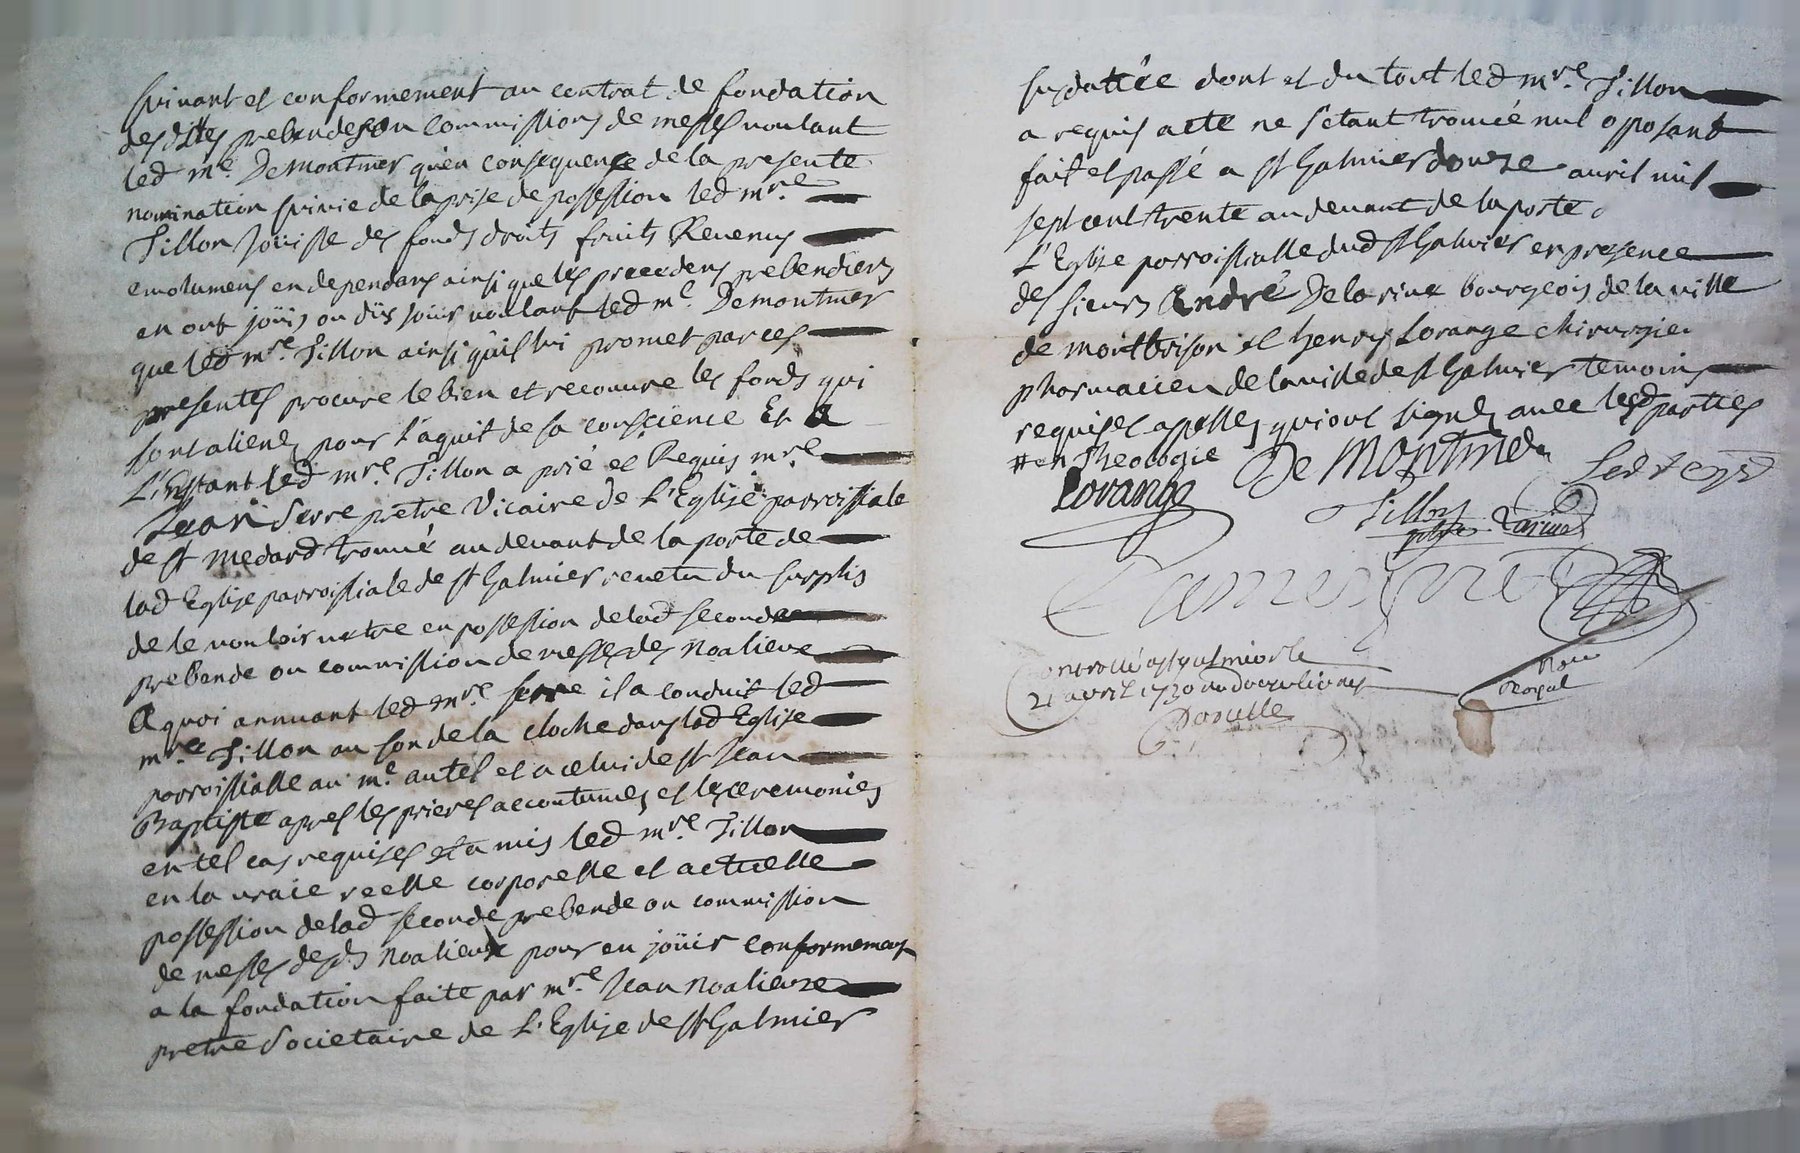 suivant et conformement au contrat de fondation
des dittes prebendes ou commissions de messes voulant
led mr. Demontmer qu'en consequence de la presente
nomination suivie de la prise de possession led mre
Tillon jouisse des fonds droits fruits Revenus
emolumens en dependans ainsi que les precedens prebendiers
en ont joüis ou dûs joüir voulant led mr. Demontmer
que led mre. Tillon ainsi qu'il lui promet par ces
presentes procure le bien et recouvre les fonds qui
sont alienés pour l'aquit de sa conscience Et a
L'instant led mre. Tillon a prié et Requis mre
Jean Serre prêtre Vicaire de L'Eglise parroissiale
de st medard trouvé au devant de la porte de
lad Eglise parroissiale de st Galmier revetu du surplis
de le vouloir mettre en possession de lad seconde
prebende ou commission de messes des noalieux
A quoi annuant led mre Serre il a conduit led
mre. Tillon au son de la cloche dans lad Eglise
parroissialle au me. autel et a celui de st Jean
Baptiste apres les prieres accoutumés et les ceremonies
en tel cas requises et a mis led mre Tillon
en la vraie reelle corporelle et actuelle
possession de lad seconde prebende ou commission
de messes desds noalieux pour en joüir conformement
a la fondation faite par mre. Jean noalieux
pretre Societaire de L'Eglise de st Galmier
susdattée dont et du tout led mre. Tillon
a requis acte ne s'etant trouvé nul opposant
fait et passé a st Galmier douze avril mil
sept cent trente au devant de la porte
L'Eglise parroissialle dud st Galmier en presence
des sieurs André Delarive bourgeois de la ville
de montbrison et henry Lorange chirurgien
pharmacien de la ville de st Galmier temoins
requises apellés qui ont signés avec lesd parties
#en Theologie De Montmer
Lorange Tillon Larive
controllé a st galmier le
21 avril 1730 douze livres
Noire
Royal